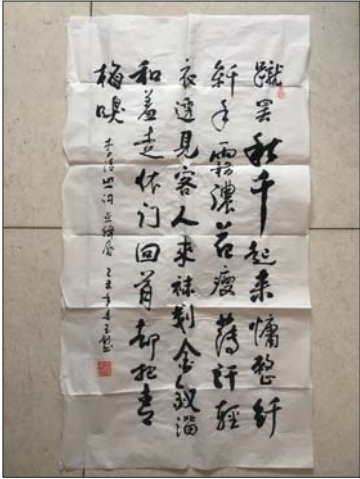 蹴罢秋千起来慵整纤
纤手露濃花瘦薄汗轻
衣透见客人来袜刬金钗溜
和羞走依门回首却把青
梅嗅 李清照词点绛唇 乙未年